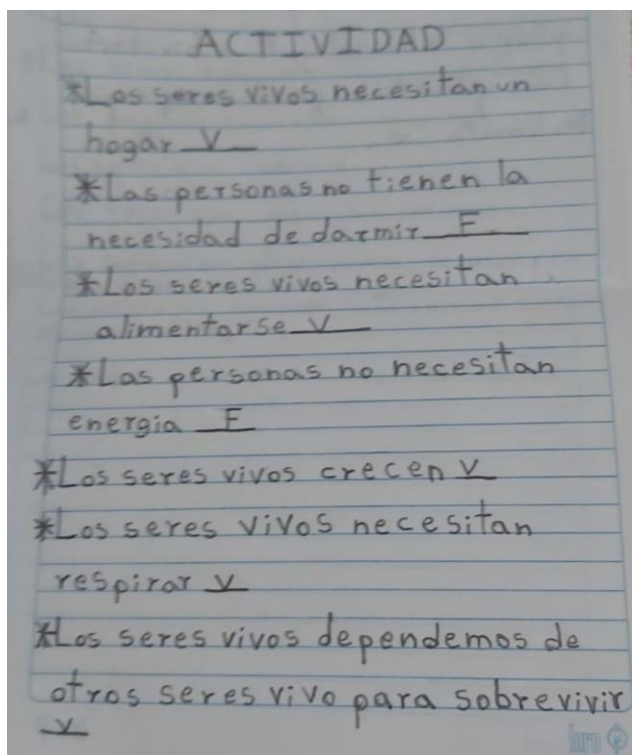 ACTIVIDAD
*Los seres vivos necesitan un
hogar V
*Las personas no tienen la
necesidad de darmir F
*Los seres vivos necesitan
alimentarse V
*Las personas no necesitan
energia F
*Los seres vivos crecen V
*Los seres vivos necesitan
respirar V
*Los seres vivos dependemos de
otros seres vivo para sobrevivir
V